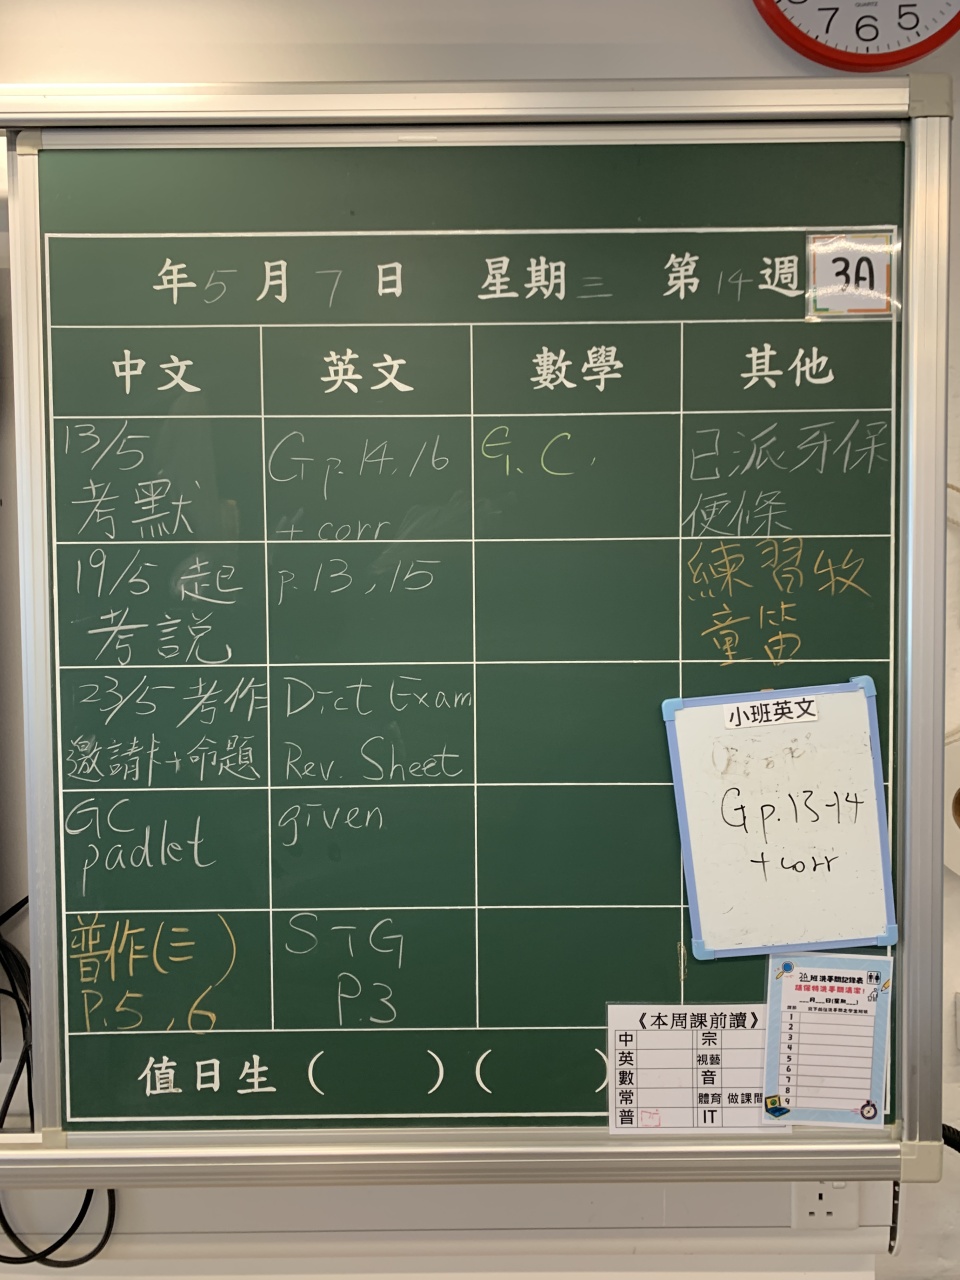 7 6 5
QUARTZ
年 5 月 7 日 星期 三 第 14 週
3A
中文 英文 數學 其他
13/5
考默
G p.14, 16
+ corr
G.C.
已派牙保
便條
19/5 起
考説
p.13, 15
練習牧
童笛
23/5 考作
邀請卡+命題
Dict Exam
Rev. Sheet
GC
padlet
given
普作(三)
P.5, 6
STG
P.3
小班英文
G p.13-14
+ corr
值日生 ( ) ( )
《本周課前讀》
中 宗
英 視藝
數 音
常 體育 做課間
普 IT
3A 班洗手間記錄表
請保持洗手間清潔!
___月___日(星期___)
1
2
3
4
5
6
7
8
9